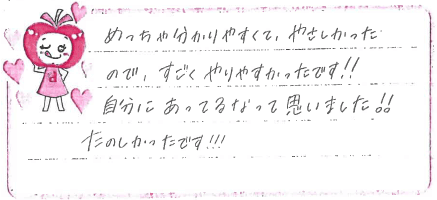 めっちゃ分かりやすくて、やさしかった
ので、すごくやりやすかったです!!
自分にあってるなって思いました!!
たのしかったです!!!